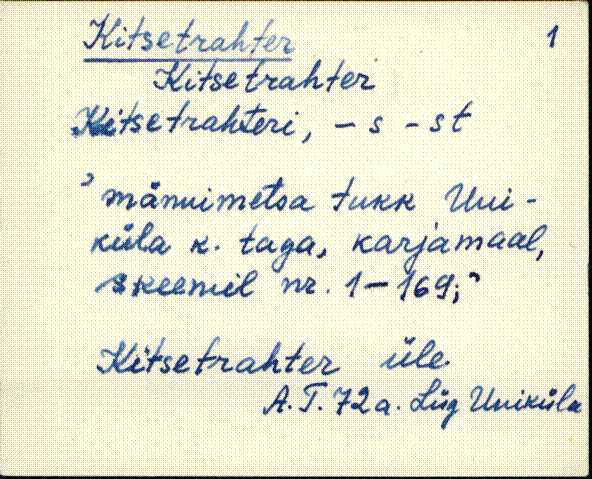 Kitsetrahter 1
Kitsetrahter
Kitsetrahteri, -s -st
"männimetsa tukk Uni-
küla k. taga, karjamaal,
skeemil nr. 1-169;"
Kitsetrahter üle
A. T. 72 a. Lüg Uniküla